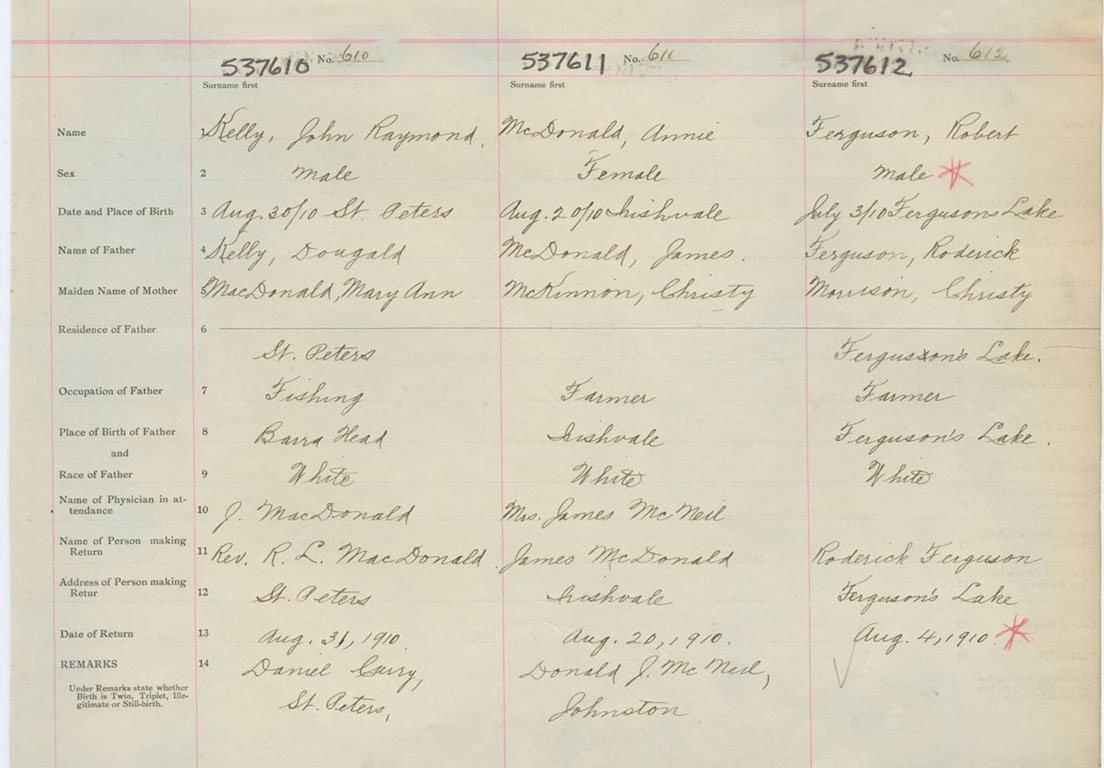 537610 No. 610 537611 No. 611 537612 No. 612
Surname first Surname first Surname first
Name Kelly, John Raymond. McDonald, Annie Ferguson, Robert
Sex 2 Male Female Male
Date and Place of Birth 3 Aug. 30/10 St. Peters Aug. 20/10 Irishvale July 3/10 Fergusons Lake
Name of Father 4 Kelly, Dougald McDonald, James. Ferguson, Roderick
Maiden Name of Mother 5 MacDonald, Mary Ann McKinnon, Christy Morrison, Christy
Residence of Father 6
St. Peters Ferguson's Lake.
Occupation of Father 7 Fishing Farmer Farmer
Place of Birth of Father 8 Barra Head Irishvale Ferguson's Lake.
and
Race of Father 9 White White White
Name of Physician in at-
tendance 10 J. MacDonald Mrs. James McNeil
Name of Person making
Return 11 Rev. R. L. MacDonald. James McDonald Roderick Ferguson
Address of Person making
Retur 12 St. Peters Irishvale Ferguson's Lake
Date of Return 13 Aug. 31, 1910. Aug. 20, 1910. Aug. 4, 1910.
REMARKS 14 Daniel Curry, Donald J. McNeil,
Under Remarks state whether
Birth is Twin, Triplet, Ille-
gitimate or Still-birth.
St. Peters, Johnston